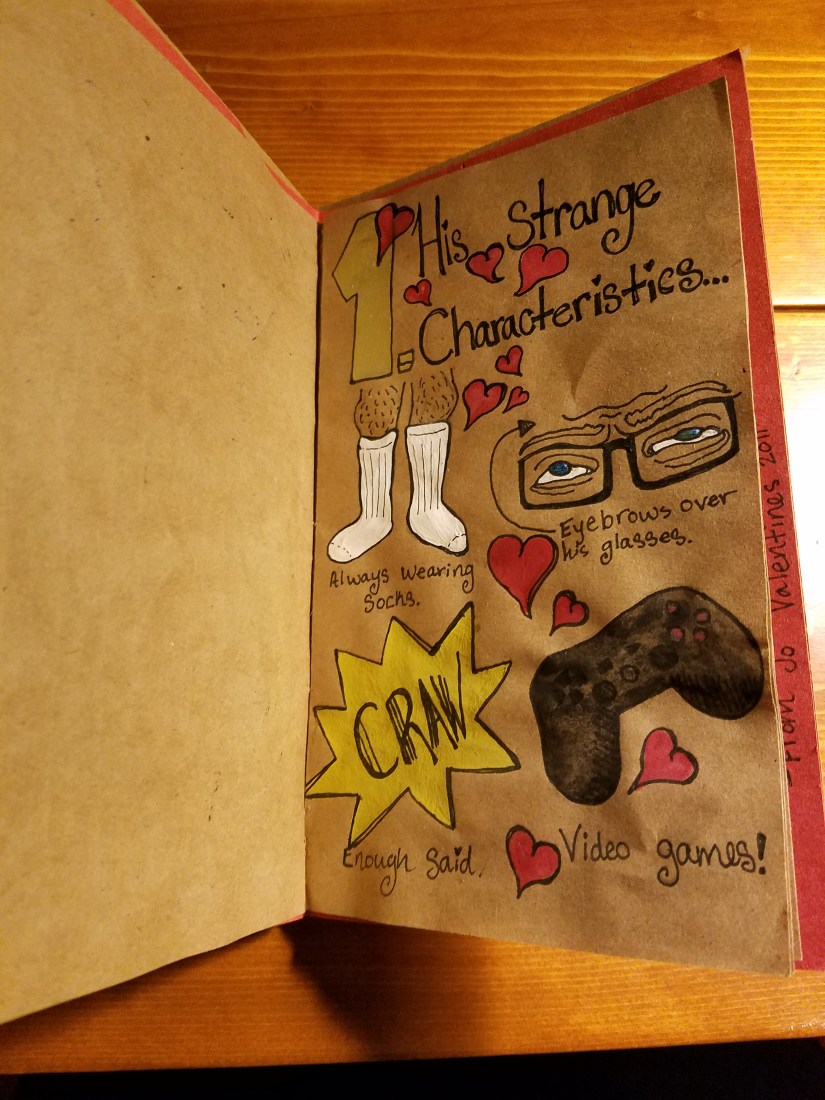 1. His Strange
Characteristics...
Eyebrows over
his glasses.
Always wearing
Socks.
CRAW
Enough Said.
Video games!
-From Jo Valentines 2011